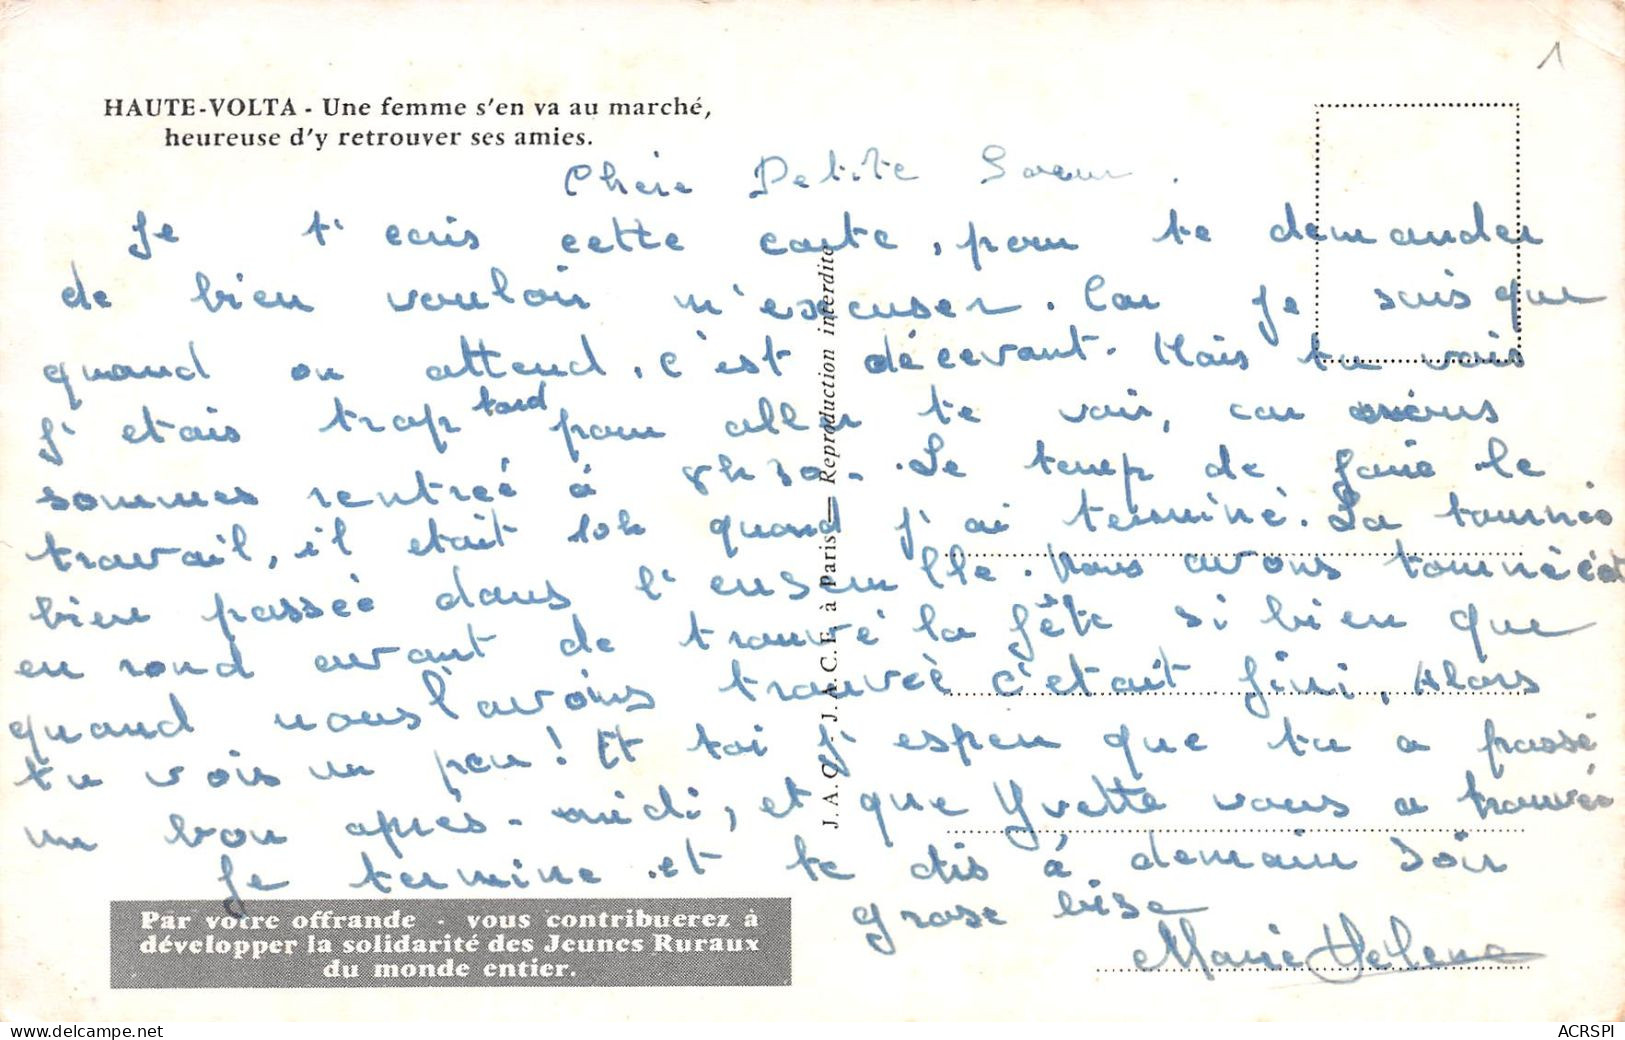 1
HAUTE-VOLTA - Une femme s'en va au marché,
heureuse d'y retrouver ses amies.
Chérie Petite Soeur.
Je t'ecris cette carte, pour te demander
de bien vouloir m'excuser. Car je sais que
quand on attend, c'est décevant. Mais tu vois
j'etais trop tard pour aller te voir, car nous
sommes rentreé à 8h30. Le temp de faire le
travail, il etait 10h quand j'ai terminé. La tourneé
bien passeé dans l'ensemlle. Nous avons tourneé et
en rond avant de trouvé la fête si bien que
quand nous l'avoins trouveé c'etait fini, Alors
tu vois un peu! Et toi j'esper que tu a passé
un bon après-midi, et que Yvette vous a trouveé
Je termine et te dis à demain soir
grose bise
Marie Helene
J.A.C. - J.A.C.F. à Paris — Reproduction interdite
Par votre offrande - vous contribuerez à
développer la solidarité des Jeunes Ruraux
du monde entier.
www.delcampe.net
ACRSPI